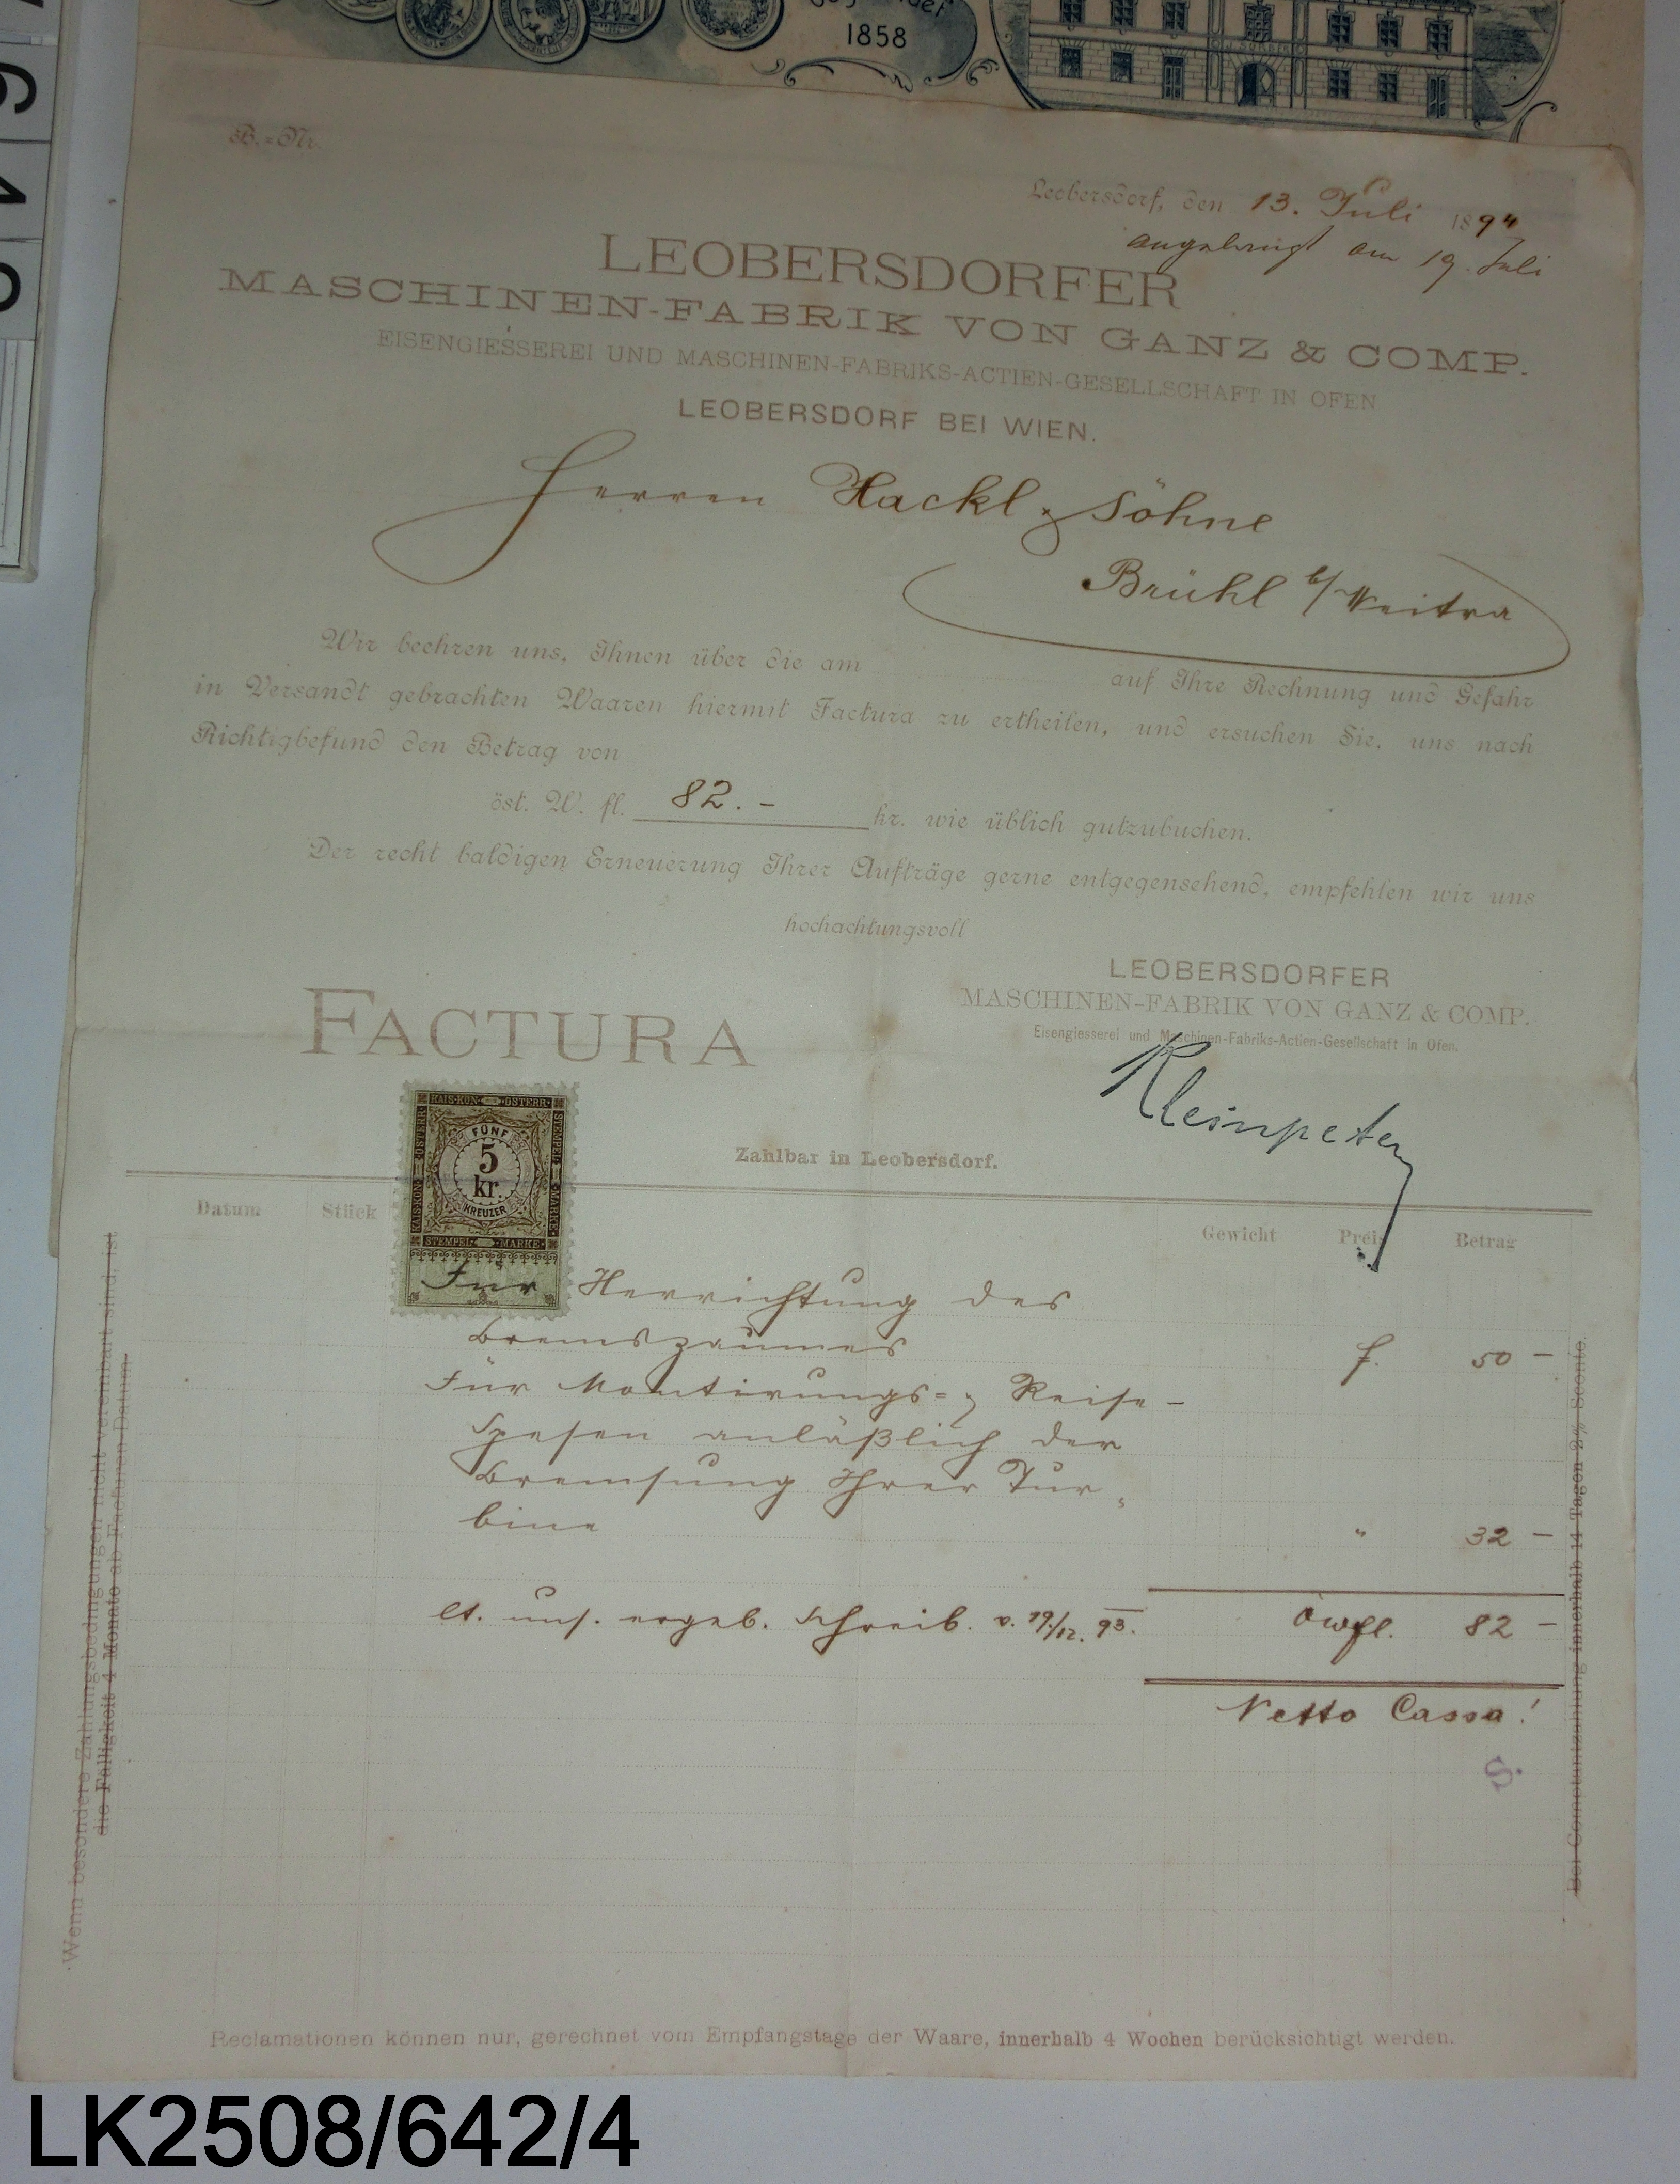 1858
B.=Nr.
Leobersdorf, den 13. Juli 1894
am 19. Juli
LEOBERSDORFER
MASCHINEN-FABRIK VON GANZ & COMP.
EISENGIESSEREI UND MASCHINEN-FABRIKS-ACTIEN-GESELLSCHAFT IN OFEN
LEOBERSDORF BEI WIEN.
Herren Hackl & Söhne
Brühl b/Weitra
Wir beehren uns, Ihnen über die am auf Ihre Rechnung und Gefahr
in Versandt gebrachten Waaren hiermit Factura zu ertheilen, und ersuchen Sie, uns nach
Richtigbefund den Betrag von
öst. W. fl. 82.- kr. wie üblich gutzubuchen.
Der recht baldigen Erneuerung Ihrer Aufträge gerne entgegensehend, empfehlen wir uns
hochachtungsvoll
LEOBERSDORFER
MASCHINEN-FABRIK VON GANZ & COMP.
Eisengiesserei und Maschinen-Fabriks-Actien-Gesellschaft in Ofen.
FACTURA
Kleinpeter
KAIS·KÖN· ÖSTERR·
STEMPEL MARKE·
KAIS·KÖN· ÖSTERR·
FÜNF
5
kr.
KREUZER
STEMPEL· MARKE·
Zahlbar in Leobersdorf.
Datum Stück Gewicht Preis Betrag
Für Herrichtung des
Bremszaumes f. 50 –
Für Montirungs= & Reise-
Spesen anläßlich der
Bremsung Ihrer Tur=
bine " 32 –
lt. uns. ergeb. Schreib. v. 19/12. 93. öwfl. 82 –
Netto Cassa!
S.
Wenn besondere Zahlungsbedingungen nicht vereinbart sind, ist
die Fälligkeit 4 Monate ab Facturen-Datum.
Bei Comptantzahlung innerhalb 14 Tagen 2% Sconto.
Reclamationen können nur, gerechnet vom Empfangstage der Waare, innerhalb 4 Wochen berücksichtigt werden.
LK2508/642/4